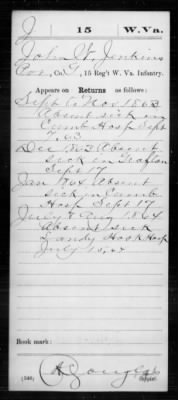 J 15 W. Va.
John W. Jenkins
Cor, Co. G, 15 Reg't W. Va. Infantry.
Appears on Returns as follows:
Sept to Nov 1863
Absent sick in
Cumb Hosp Sept
7, 63
Dec 1863 Absent
sick in Grafton
Sept 17
Jan 1864 Absent
sick in Cumb
Hosp Sept 17
July & Aug 1864
Absent sick
Sandy Hook Hosp
July 15, 64
Book mark:
(546)
Copyist.